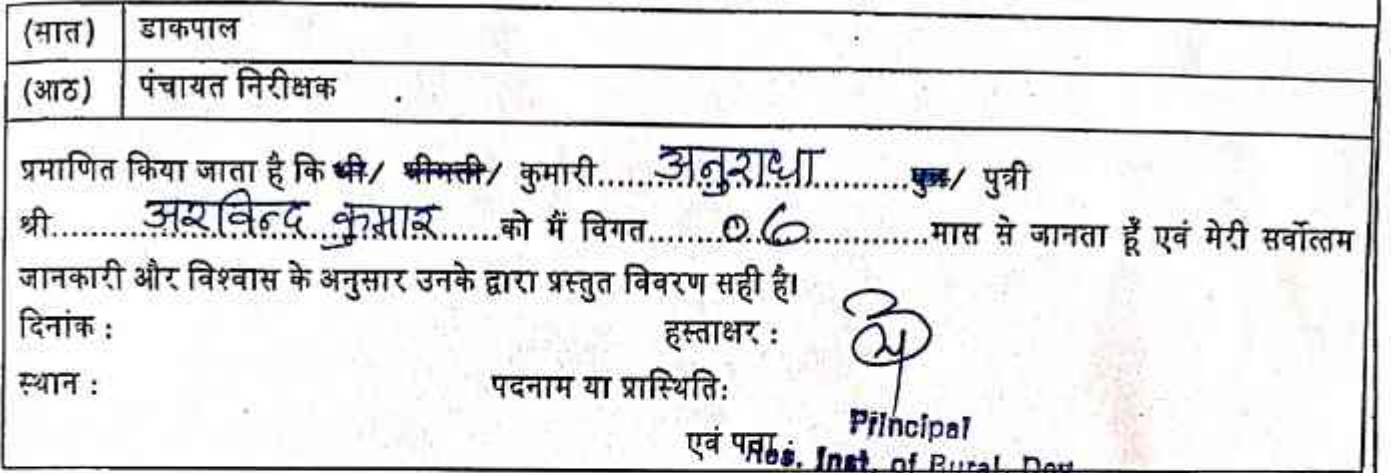 (सात) डाकपाल
(आठ) पंचायत निरीक्षक
प्रमाणित किया जाता है कि श्री/ श्रीमती/ कुमारी....अनुराधा....पुत्र/ पुत्री
श्री....अरविन्द कुमार....को मैं विगत....06....मास से जानता हूँ एवं मेरी सर्वोत्तम
जानकारी और विश्वास के अनुसार उनके द्वारा प्रस्तुत विवरण सही है।
दिनांक : हस्ताक्षर :
स्थान : पदनाम या प्रास्थिति:
Principal
एवं पता : Res. Inst. of Rural. Dev